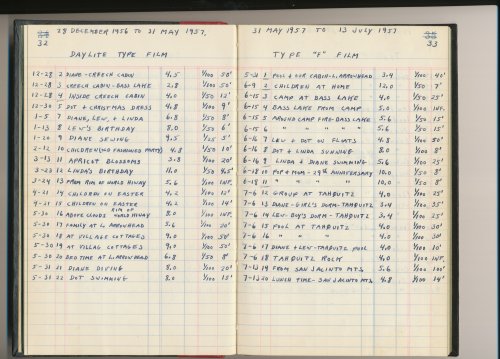 28 DECEMBER 1956 TO 31 MAY 1957.
32
DAYLITE TYPE FILM
12-28 2 DIANE-CREECH CABIN 4.5 1/100 50'
12-28 3 CREECH CABIN-BASS LAKE 2.8 1/100 50'
12-28 4 INSIDE CREECH CABIN 4.0 1/50 12'
12-30 5 DOT + CHRISTMAS DRESS 4.8 1/100 9'
1-5 7 DIANE, LEW, & LINDA 6.8 1/50 8'
1-13 8 LEW'S BIRTHDAY 8.0 1/50 6'
1-20 9 DIANE SEWING 9.5 1/25 5'
2-12 10 CHILDREN (NO FASHIONED PARTY) 4.8 1/50 10'
3-13 11 APRICOT BLOSSOMS 3.8 1/100 20'
3-23 12 LINDA'S BIRTHDAY 11.0 1/50 4.5'
3-24 13 FROM RIM OF WORLD HIWAY 5.6 1/100 INF.
4-21 14 CHILDREN ON EASTER 4.2 1/100 12'
4-21 15 CHILDREN ON EASTER 4.2 1/100 14'
5-30 16 ABOVE CLOUDS RIM OF WORLD HIWAY 8.0 1/100 INF.
5-30 17 FAMILY AT L. ARROWHEAD 5.6 1/100 20'
5-30 18 AT VILLAGE COTTAGES 9.0 1/50 50'
5-30 19 AT VILLAG COTTAGES 9.0 1/50 50'
5-30 20 BED TIME AT L. ARROWHEAD 6.8 1/50 8'
5-31 21 DIANE DIVING 8.0 1/100 20'
5-31 22 DOT SWIMMING 8.0 1/100 15'
31 MAY 1957 TO 13 JULY 1957
33
TYPE "F" FILM
5-31 1 POOL & OUR CABIN-L. ARROWHEAD 3.4 1/100 40'
6-9 2 CHILDREN AT HOME 12.0 1/50 7'
6-15 3 CAMP AT BASS LAKE 4.0 1/50 25'
6-15 4 BASS LAKE FROM CAMP 5.0 1/100 INF.
6-15 5 AROUND CAMP FIRE-BASS LAKE 5.6 1/50 15'
6-15 6 " " " " " 5.6 1/50 15'
6-16 7 LEW & DOT ON FLOATS 4.8 1/100 50'
6-16 8 DOT & LINDA SUNNING 8.0 1/100 8'
6-16 9 LINDA & DIANE SWIMMING 5.6 1/100 25'
6-18 10 POP & MOM-29th ANNIVERSARY 10.0 1/50 8'
6-18 11 " " " " 10.0 1/50 8'
7-6 12 GROUP AT TAHQUITZ 4.0 1/100 25'
7-6 13 DIANE-GIRL'S DORM-TAHQUITZ 3.4 1/100 35'
7-6 14 LEW-BOY'S DORM-TAHQUITZ 3.4 1/100 25'
7-6 15 POOL AT TAHQUITZ 4.0 1/100 30'
7-6 16 " " " 4.0 1/100 30'
7-6 17 DIANE & LEW-TAHQUITZ POOL 4.0 1/100 10'
7-6 18 TAHQUITZ ROCK 4.0 1/100 INF.
7-13 19 FROM SAN JACINTO MTS. 5.6 1/100 100'
7-13 20 LUNCH TIME-SAN JACINTO MTS. 4.8 1/100 14'